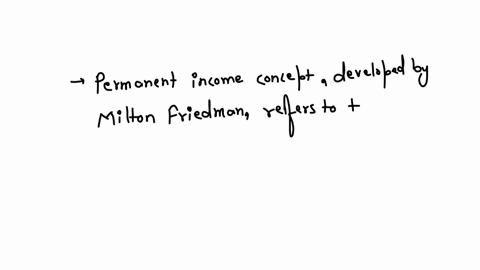 → Permanent income concept, developed by
Milton Friedman, refers to t